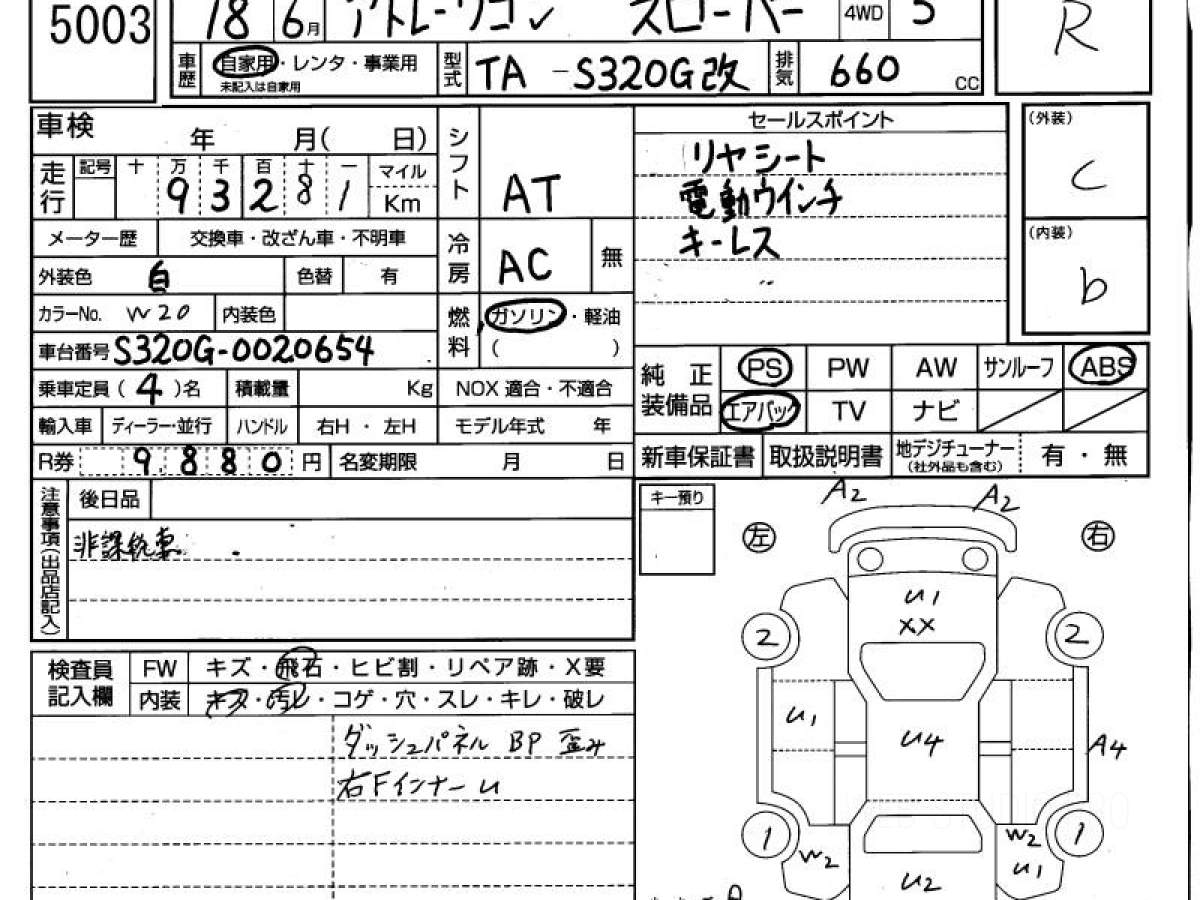 5003
18 6月 アトレーワゴン スローパー 4WD 5
R
車歴 自家用・レンタ・事業用 未記入は自家用
型式 TA -S320G改 排気 660 cc
車検 年 月( 日)
シフト AT
セールスポイント
リヤシート
電動ウインチ
キーレス
(外装) C
(内装) b
走行 記号 十 万 千 百 十 一 マイル Km
9 3 2 8 1
メーター歴 交換車・改ざん車・不明車
冷房 AC 無
外装色 白 色替 有
カラーNo. W20 内装色
燃料 ガソリン・軽油 ( )
車台番号 S320G-0020654
乗車定員(4)名 積載量 Kg NOX 適合・不適合
純正装備品 PS PW AW サンルーフ ABS
エアバッグ TV ナビ
輸入車 ディーラー・並行 ハンドル 右H・左H モデル年式 年
R券 9,880 円 名変期限 月 日
新車保証書 取扱説明書 地デジチューナー (社外品も含む) 有・無
注意事項(出品店記入) 後日品
非課税車
キー預り
A2 A2
左 右
U1
XX
2 2
U1 U4 A4
1 1
W2 W2
U1
U2
検査員記入欄 FW キズ・飛石・ヒビ割・リペア跡・X要
内装 キズ・汚レ・コゲ・穴・スレ・キレ・破レ
ダッシュパネル BP 歪み
右Fインナー U